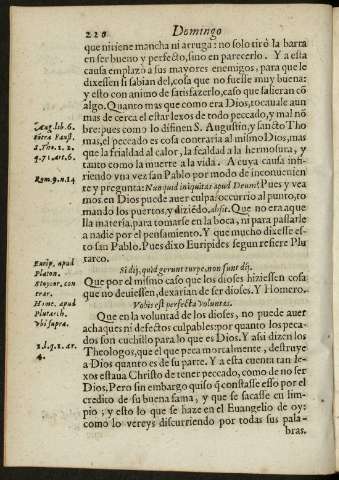 220 Domingo
que ni tiene mancha ni arruga: no solo tiró la barra
en ser bueno y perfecto, sino en parecerlo. Y a esta
causa emplazó a sus mayores enemigos, para que le
dixessen si sabian del, cosa que no fuesse muy buena:
y esto con animo de satisfazerlo, caso que salieran cō
algo. Quanto mas que como era Dios, tocauale aun
mas de cerca el estar lexos de todo peccado, y mal nō
Aug. lib. 6.
bre: pues como lo difinen S. Augustin, y sancto Tho
cōtra Faust.
mas, el peccado es cosa contraria al mismo Dios, mas
S. Tho. 1. 2.
que la frialdad al calor, la fealdad a la hermosura, y
q. 71. ar. 6.
tanto como la muerte a la vida. A cuya causa infi-
riendo vna vez san Pablo por modo de inconuenien
Rom. 9. n. 14
te y pregunta: Nunquid iniquitas apud Deum? Pues y vea
mos en Dios puede auer culpa? occurrio al punto, to
mando los puertos, y diziēdo, absit. Que no era aque
lla materia, para tomarse en la boca, ni para passarle
a nadie por el pensamiento. Y que mucho dixesse es-
to san Pablo. Pues dixo Euripides segun refiere Plu
Eurip. apud
tarco.
Platon.
Si dij, quid gerunt turpe, non sunt dij.
Stoycor, con
Que por el mismo caso que los dioses hiziessen cosa
trar.
que no deuiessen, dexarian de ser dioses. Y Homero.
Home. apud
Vobis est perfecta voluntas.
Plutarch.
Que en la voluntad de los dioses, no puede auer
vbi supra.
achaques ni defectos culpables: por quanto los peca-
dos son cuchillo para lo que es Dios. Y asi dizen los
1. d. q. 1. ar.
Theologos, que el que peca mortalmente, destruye
4.
a Dios quanto es de su parte. Y a esta cuenta tan le-
xos estaua Christo de tener peccado, como de no ser
Dios, Pero sin embargo quiso q̄ constasse esso por el
credito de su buena fama, y que se sacasse en lim-
pio; y esto lo que se haze en el Euangelio de oy:
como lo vereys discurriendo por todas sus pala-
bras.